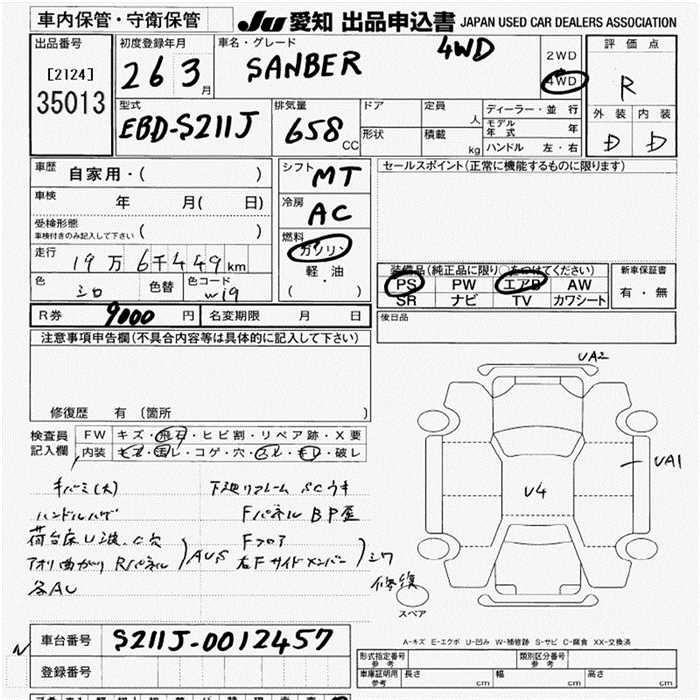 車内保管・守衛保管
JU 愛知 出品申込書 JAPAN USED CAR DEALERS ASSOCIATION
出品番号
[2124]
35013
初度登録年月
26 3 月
車名・グレード
SANBER 4WD
2WD
4WD
評価点
R
外装 内装
D D
型式
EBD-S211J
排気量
658 CC
ドア
定員
人
形状
積載
kg
ディーラー・並行
モデル年式 年
ハンドル 左・右
車歴
自家用・( )
車検
年 月( 日)
受検形態
車検付きのみ記入して下さい ( )
走行
19万6千449km
色
シロ
色替
色コード
W19
シフト
MT
冷房
AC
燃料
ガソリン
軽・油
( )
セールスポイント(正常に機能するものに限ります)
装備品(純正品に限り○をつけてください)
PS PW エアB AW
SR ナビ TV カワシート
新車保証書
有・無
後日品
R券 9000 円
名変期限 月 日
注意事項申告欄(不具合内容等は具体的に記入して下さい)
修復歴 有 (箇所 )
検査員
記入欄
FW キズ・飛石・ヒビ割・リペア跡・X要
内装 キズ・汚レ・コゲ・穴・スレ・キレ・破レ
ハンドルハゲ
Fパネル BP歪
Rパネル
Fフロア
アオリ曲がり
右Fサイドメンバー
シワ
修復
各AU
UA2
UA1
U4
スペア
A-キズ E-エクボ U-凹み W-補修跡 S-サビ C-腐食 XX-交換済
車台番号 S211J-0012457
登録番号
形式指定番号
参考
類別区分番号
参考
車庫証明用
参考
長さ cm
幅 cm
高さ cm